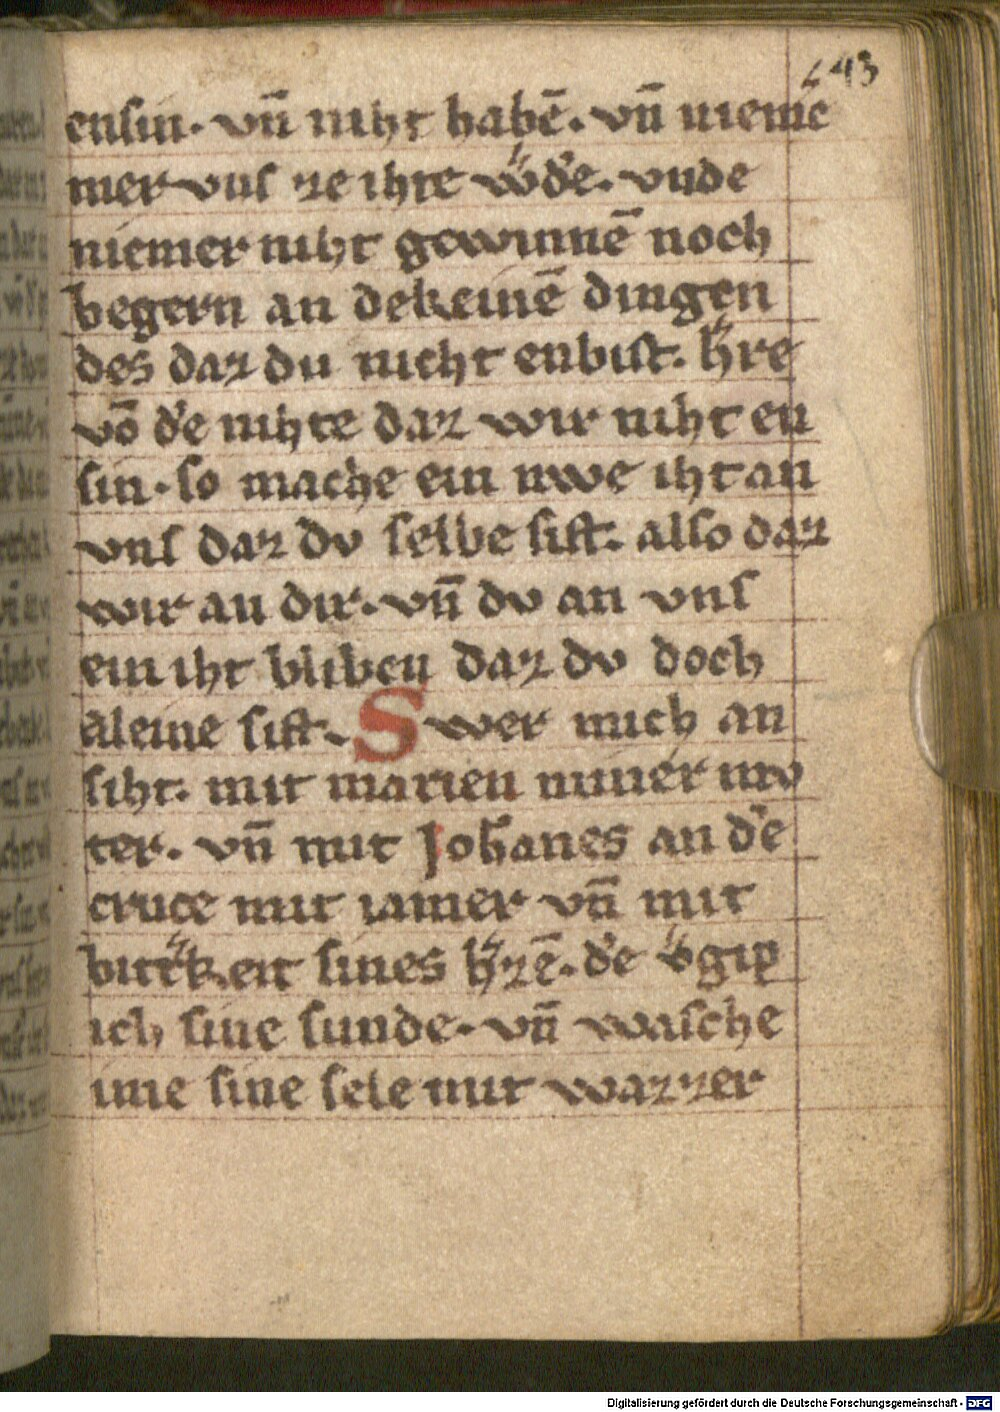 143
ensin. vn̄ niht habē. vn̄ niemē
mer vns ze ihte w̓de. vnde
niemer niht gewinnē noch
begern an dekeinē dingen
des daz du nicht enbist. h̓re
vō d̓e nihte daz wir niht en
sin. so mache ein nwe iht an
vns daz dv selbe sist. also daz
wir an dir. vn̄ dv an vns
ein iht bliben daz dv doch
aleine sist. Swer mich an
siht. mit marien miner mv
ter. vn̄ mit Johanes an d̓e
cruce mit iamer vn̄ mit
bitt̓keit sines h̓zē. d̓e v̓gib
ich sine sunde. vn̄ wasche
ime sine sele mit wazzer
Digitalisierung gefördert durch die Deutsche Forschungsgemeinschaft - DFG